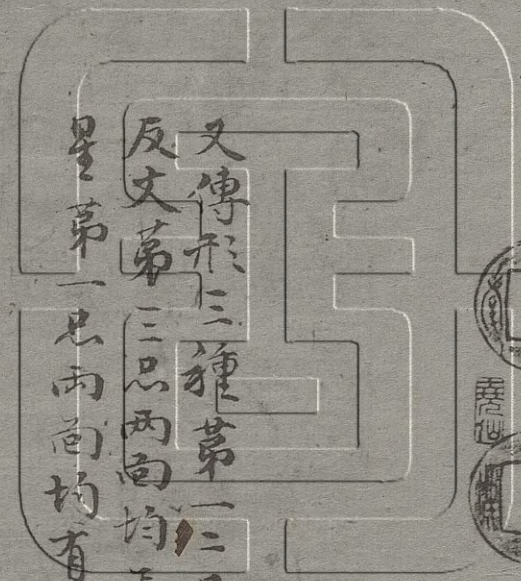 又傳形三種第一二
反文第三品兩面均
星第一品兩面均有